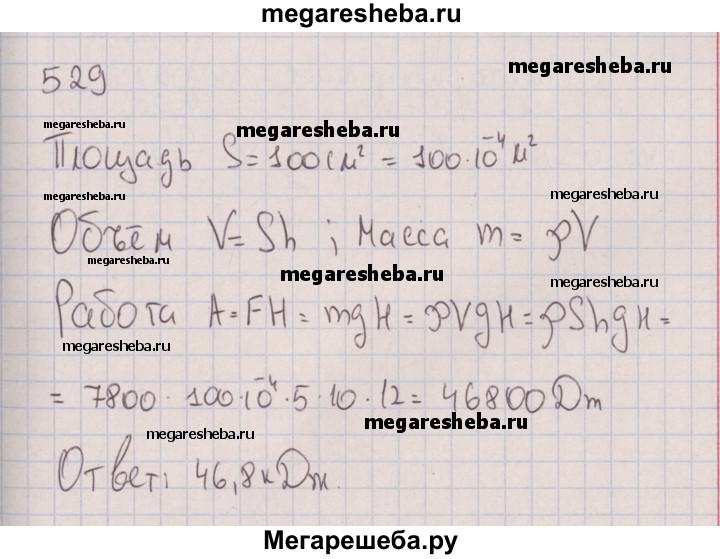 megaresheba.ru
529
megaresheba.ru
megaresheba.ru
megaresheba.ru
Площадь S = 100 см² = 100·10⁻⁴ м²
megaresheba.ru
Объём V = Sh ; Масса m = ρV
megaresheba.ru
megaresheba.ru
megaresheba.ru
Работа A = FH = mgH = ρVgH = ρShgH =
megaresheba.ru
megaresheba.ru
= 7800 · 100·10⁻⁴ · 5 · 10 · 12 = 46800 Дж
megaresheba.ru
megaresheba.ru
Ответ: 46,8 кДж.
Мегарешеба.ру